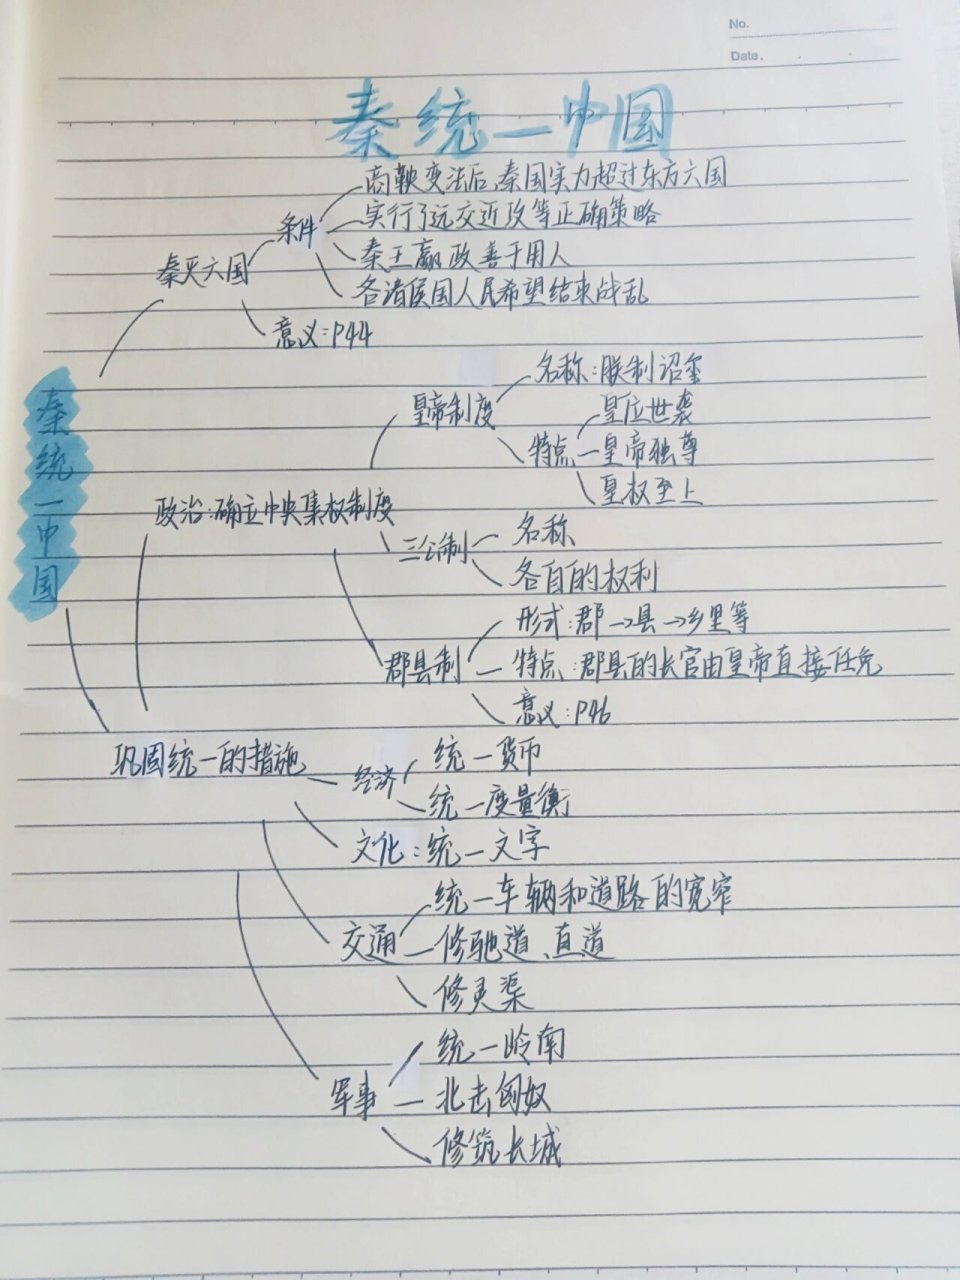 No.
Date.
秦统一中国
商鞅变法后、秦国实力超过东方六国
条件
实行了远交近攻等正确策略
秦王嬴政善于用人
秦灭六国
各诸侯国人民希望结束战乱
意义:P44
秦统一中国
名称:朕制诏玺
皇帝制度
皇位世袭
特点
皇帝独尊
皇权至上
政治:确立中央集权制度
三公制
名称
各自的权利
形式:郡→县→乡里等
郡县制
特点:郡县的长官由皇帝直接任免
意义:P46
巩固统一的措施
经济
统一货币
统一度量衡
文化:统一文字
统一车辆和道路的宽窄
交通
修驰道、直道
修灵渠
统一岭南
军事
北击匈奴
修筑长城